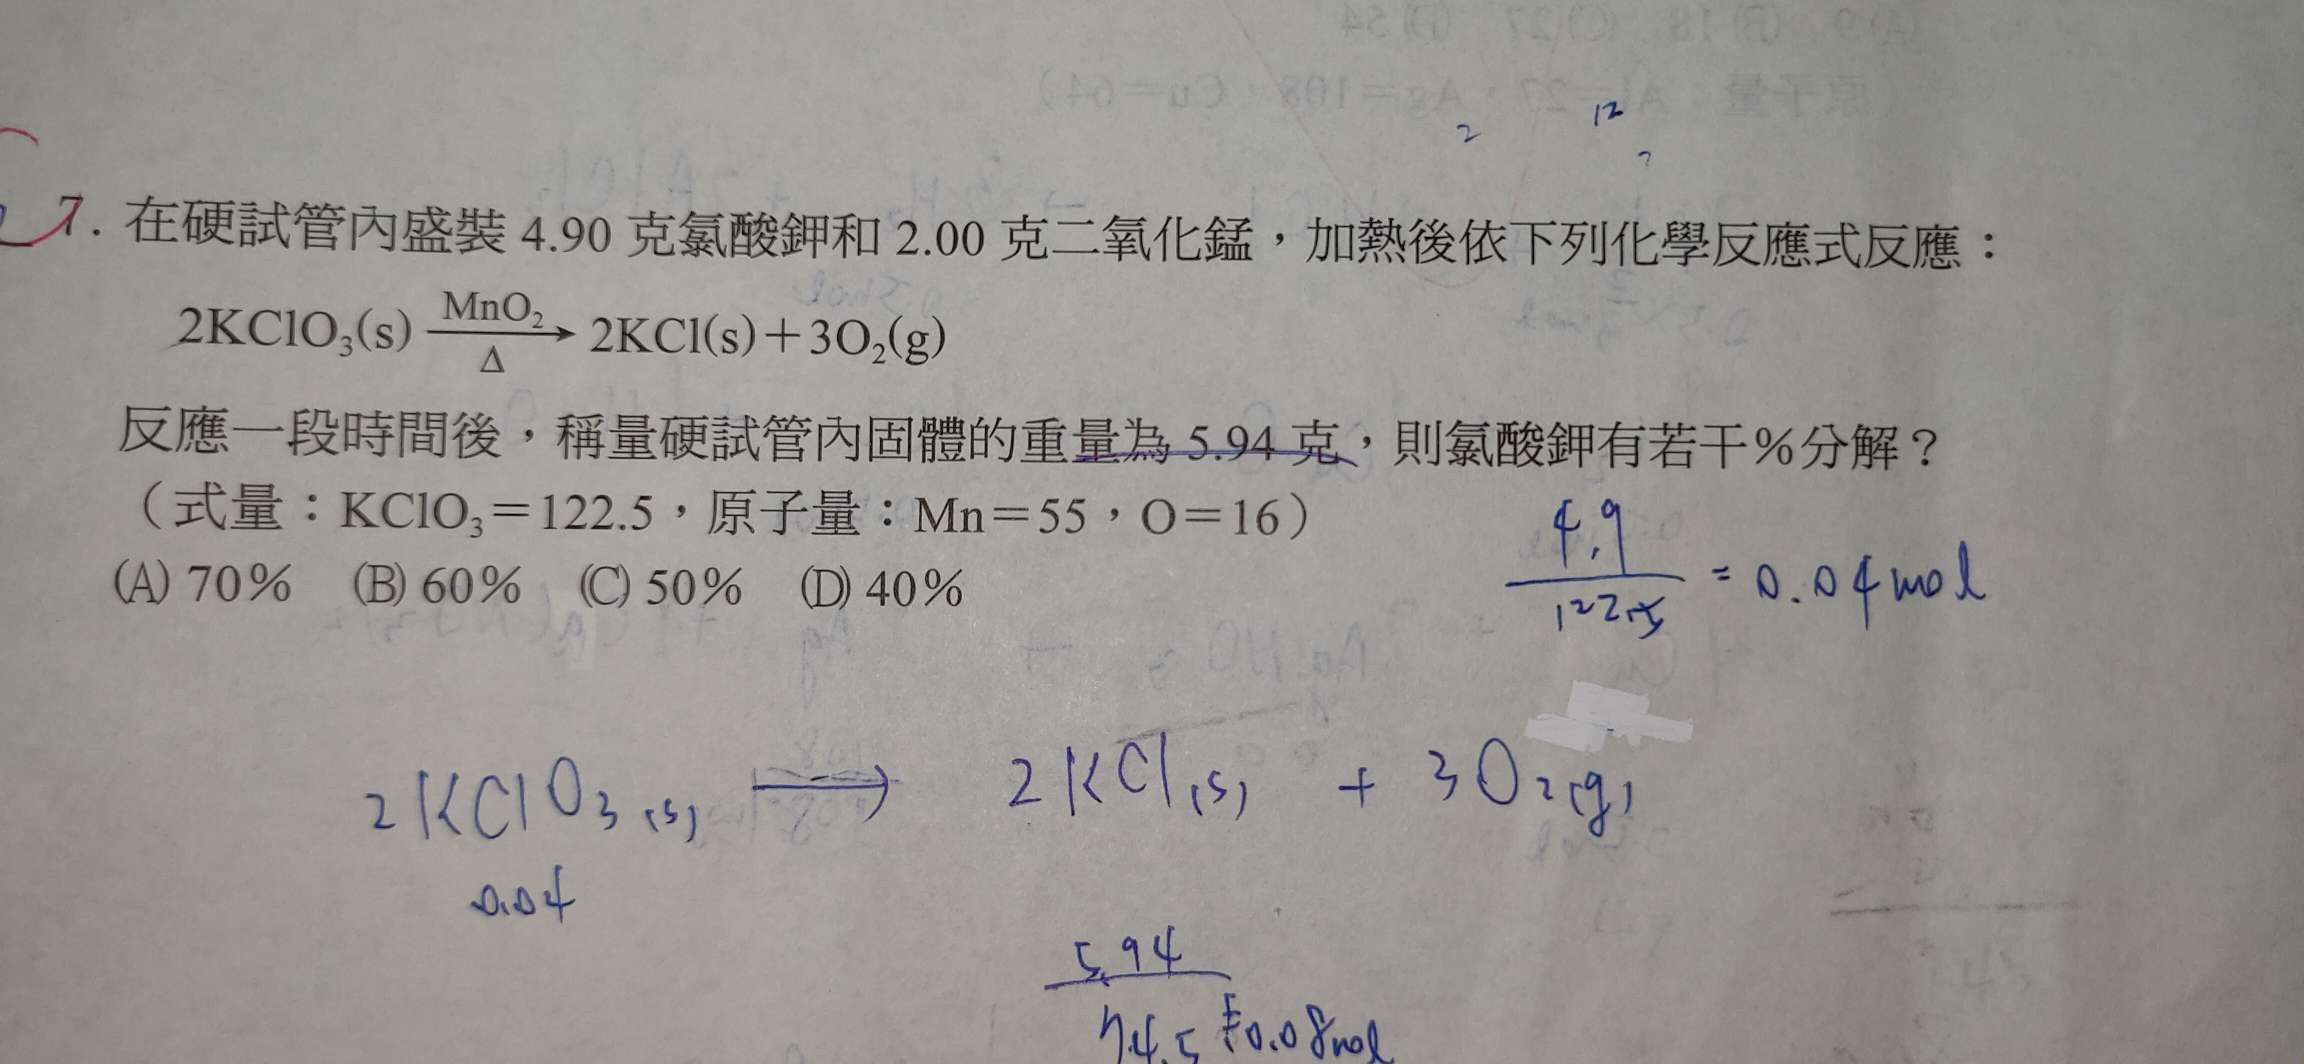 2
12
2
7. 在硬試管內盛裝 4.90 克氯酸鉀和 2.00 克二氧化錳，加熱後依下列化學反應式反應：
2KClO₃(s) —MnO₂/Δ→ 2KCl(s)＋3O₂(g)
反應一段時間後，稱量硬試管內固體的重量為 5.94 克，則氯酸鉀有若干％分解？
（式量：KClO₃＝122.5，原子量：Mn＝55，O＝16）
(A) 70％ (B) 60％ (C) 50％ (D) 40％
4.9/122.5 = 0.04mol
2KClO₃(s) → 2KCl(s) + 3O₂(g)
0.04
5.94/74.5 = 0.08mol